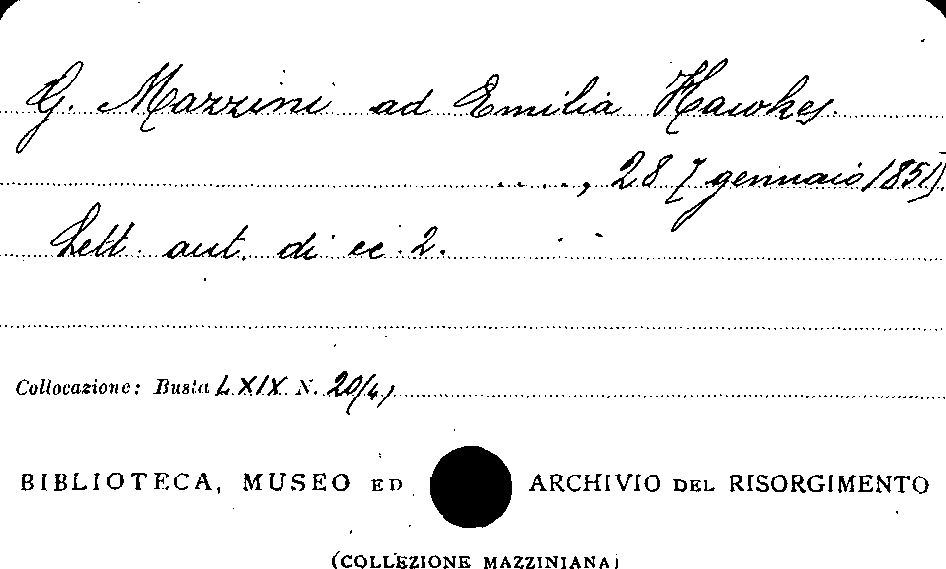 G. Mazzini ad Emilia Hawkes.
...., 28 [gennaio 1851].
Lett. aut. di cc. 2.
Collocazione: Busta LXIX N. 20(4)
BIBLIOTECA, MUSEO ED ARCHIVIO DEL RISORGIMENTO
(COLLEZIONE MAZZINIANA)